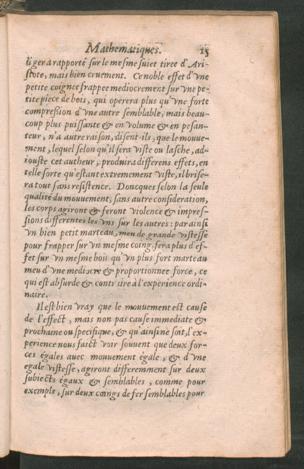 Mathematiques. 15
liger a rapporté sur le mesme suiet tiree d'Ari-
stote, mais bien cruement. Ce noble effet d'vne
petite coignee frappee mediocrement sur vne pe-
tite piece de bois, qui operera plus qu'vne forte
compreßion d'vne autre semblable, mais beau-
coup plus puissante & en volume & en pesan-
teur, n'a autre raison, disent-ils, que le mouue-
ment, lequel selon qu'il sera viste ou lasche, ad-
iouste cet autheur, produira differens effets, en
telle sorte qu'estant extremement viste, il brise-
ra tout sans resistence. Doncques selon la seule
qualité du mouuement, sans autre consideration,
les corps agiront & feront violence & impres-
sions differentes les vns sur les autres: par ainsi
vn bien petit marteau, meu de grande vistesse
pour frapper sur vn mesme coing, fera plus d'ef-
fet sur vn mesme bois qu'vn plus fort marteau
meu d'vne mediocre & proportionnee force, ce
qui est absurde & contraire à l'experience ordi-
naire.
Il est bien vray que le mouuement est cause
de l'effect, mais non pas cause immediate &
prochaine ou specifique, & qu'ainsi ne soit, l'ex-
perience nous faict voir souuent que deux for-
ces égales auec mouuement égale, & d'vne
egale vistesse, agiront differemment sur deux
subiects égaux & semblables, comme pour
exemple, sur deux coings de fer semblables pour